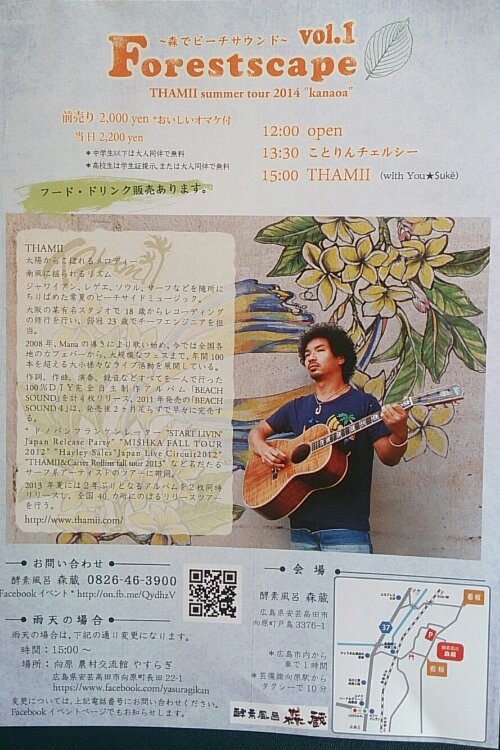 ~森でビーチサウンド~ vol.1
Forestscape
THAMII summer tour 2014 "kanaoa"
前売り 2,000 yen *おいしいオマケ付
当日 2,200 yen
＊中学生以下は大人同伴で無料
＊高校生は学生証提示、または大人同伴で無料
フード・ドリンク販売あります。
12:00 open
13:30 ことりんチェルシー
15:00 THAMII (with You★$ukë)
THAMII
太陽からこぼれるメロディー
南風に揺られるリズム
ジャワイアン、レゲエ、ソウル、サーフなどを随所に
ちりばめた常夏のビーチサイドミュージック。
大阪の某有名スタジオで18歳からレコーディング
の修行を行い、弱冠23歳でチーフエンジニアを担
当。
2008年、Manaの導きにより歌い始め、今では全国各
地のカフェバーから、大規模なフェスまで、年間100
本を超える大小様々なライブ活動を展開している。
作詞、作曲、演奏、録音などすべてを一人で行った
100%DIY完全自主制作アルバム「BEACH
SOUND」を計4枚リリース、2011年発売の「BEACH
SOUND 4」は、発売後2ヶ月足らずで早々に完売す
る。
"ドノバンフランケンレイター "START LIVIN'
Japan Release Party" "MISHKA FALL TOUR
2012" "Hayley Sales"Japan Live Circuit2012"
"THAMII&Carter Rollins fall tour 2013" など名だたる
サーフ系アーティストのツアーに帯同。
2013年夏には2年ぶりとなるアルバムを2枚同時
リリースし、全国40カ所にのぼるリリースツアー
を行う。
http://www.thamii.com/
お問い合わせ
酵素風呂 森蔵 0826-46-3900
Facebook イベント* http://on.fb.me/QydhzV
雨天の場合
雨天の場合は、下記の通り変更になります。
時間：15:00 ～
場所：向原 農村交流館 やすらぎ
広島県安芸高田市向原町長田 22-1
https://www.facebook.com/yasuragikan
変更については、上記電話番号にお問い合わせください。
Facebook イベントページでもお知らせします。
会場
酵素風呂 森蔵
広島県安芸高田市
向原町戸島 3376-1
＊広島市内から
車で1時間
＊芸備線向原駅から
タクシーで10分
酵素風呂 森蔵
看板
37
P
酵素風呂
森蔵
看板